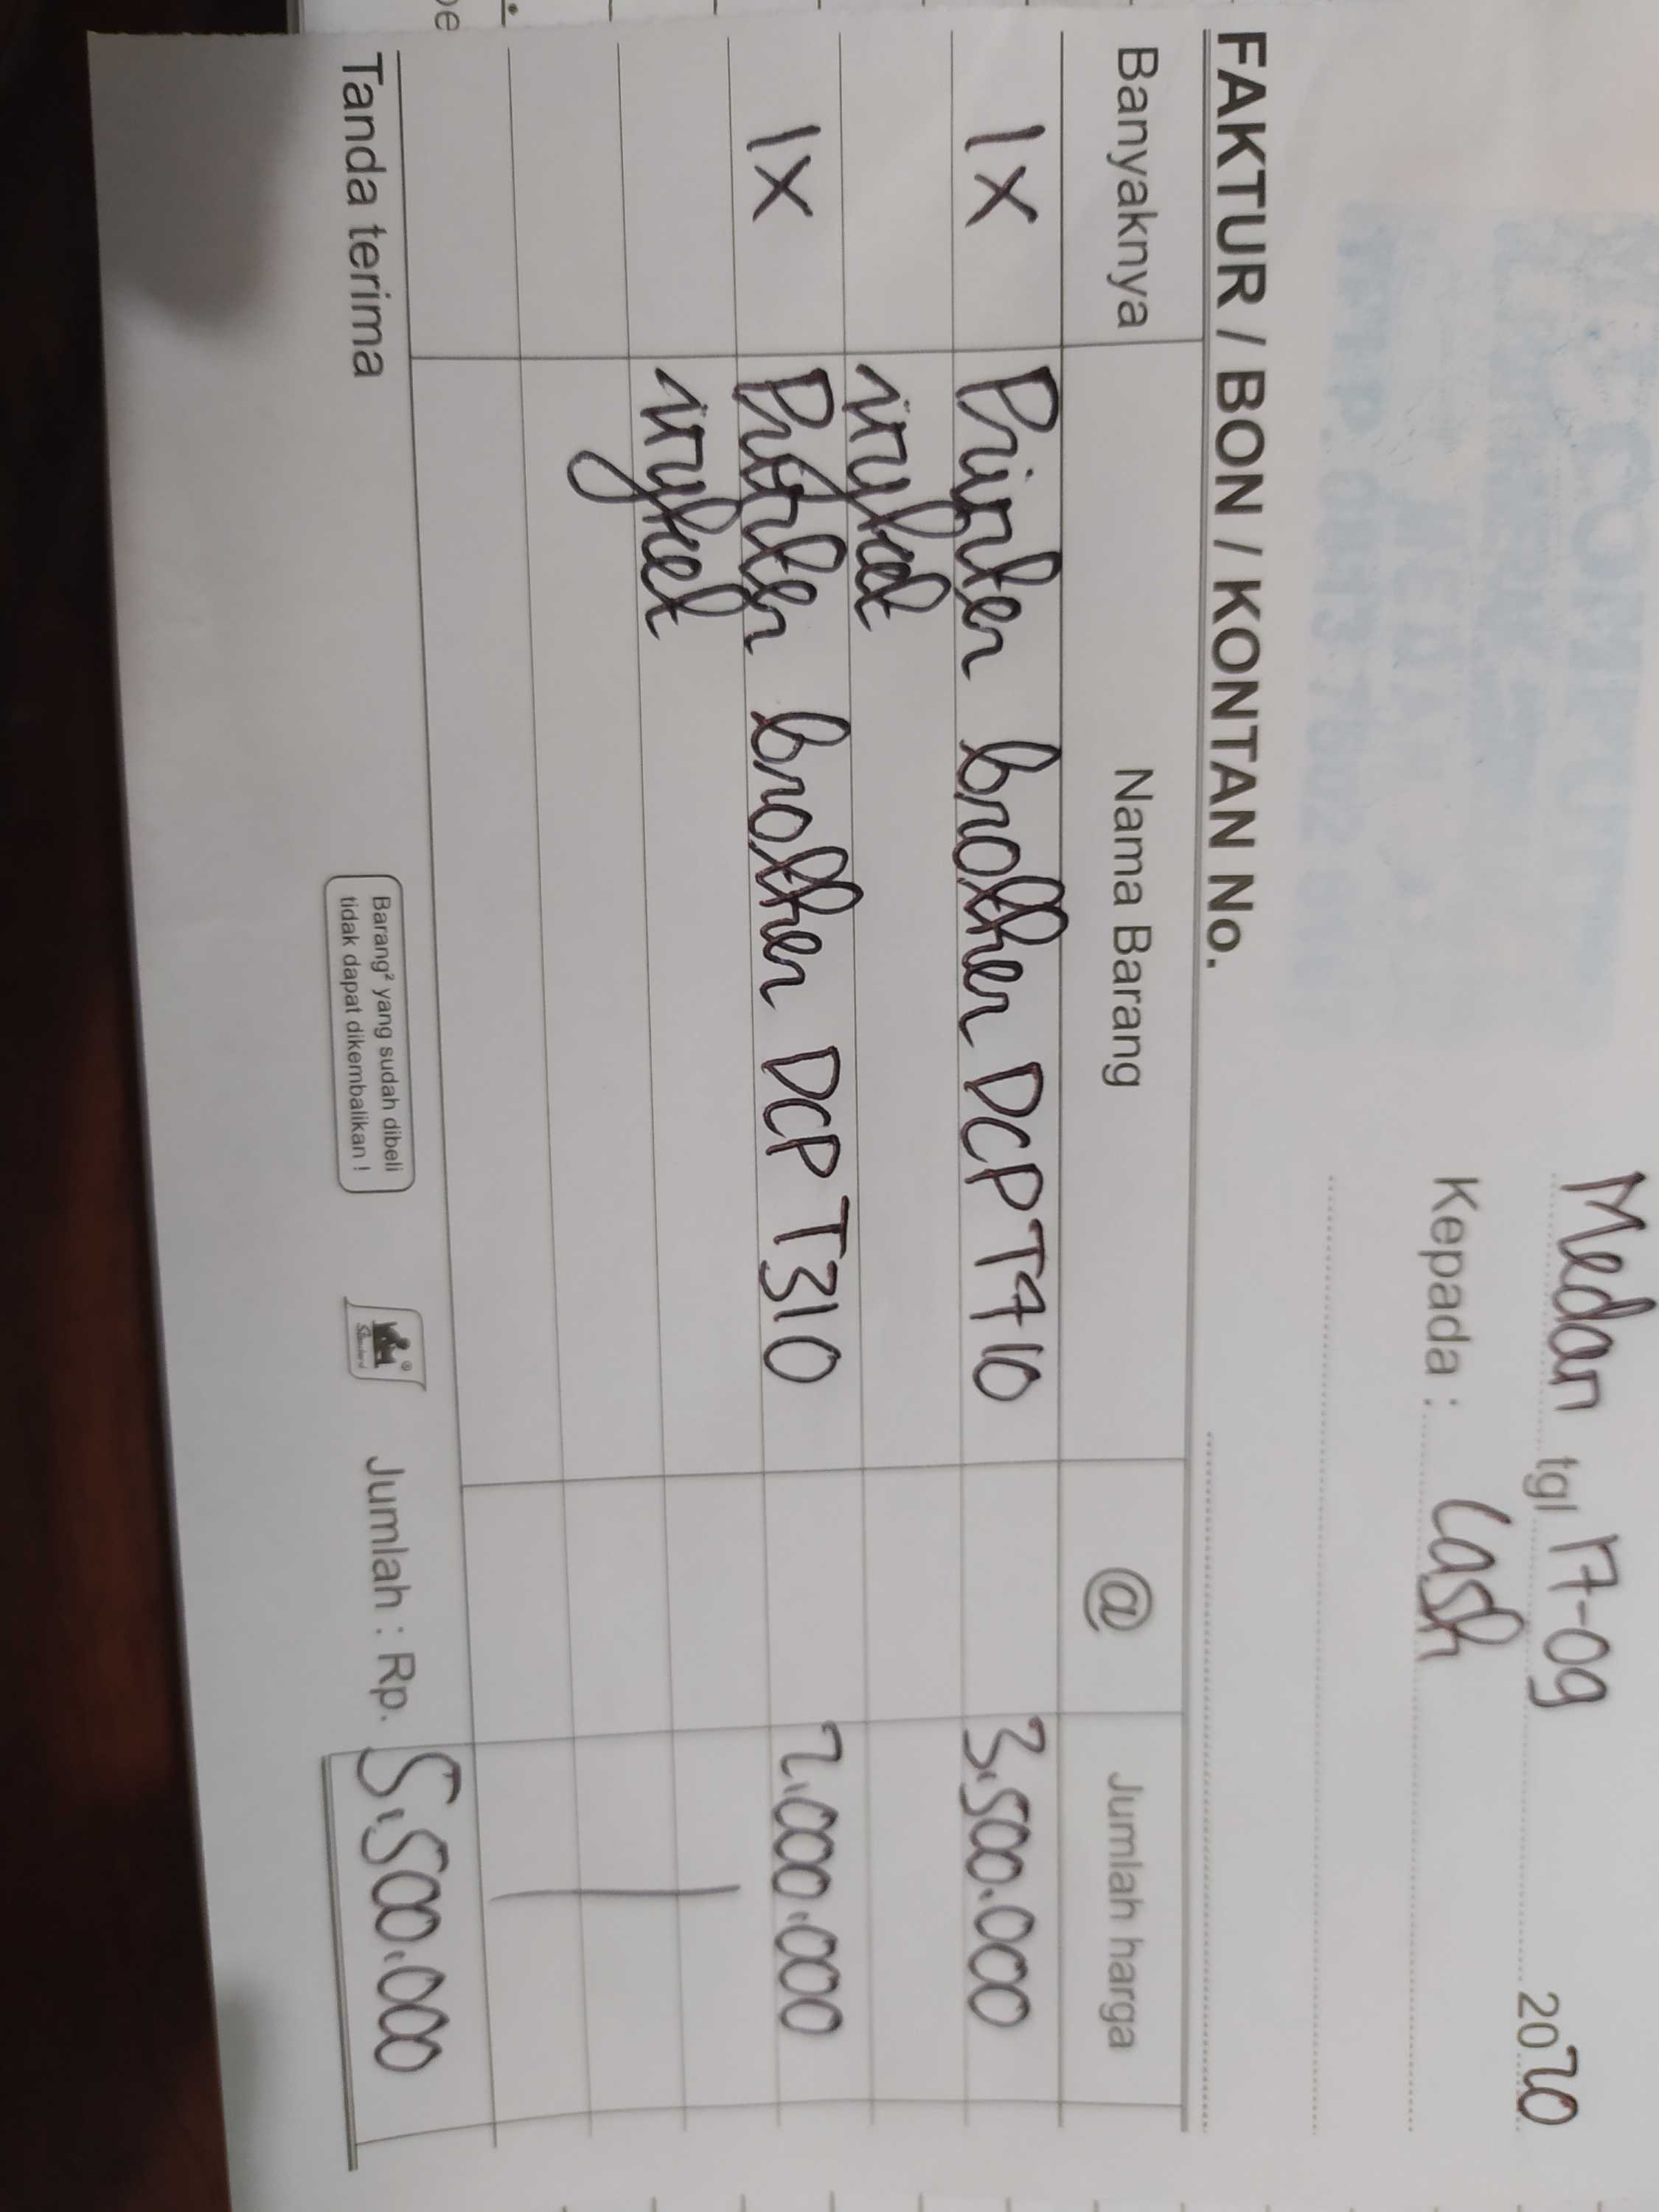 Medan tgl 17-09 2020
Kepada : Cash
FAKTUR / BON / KONTAN No.
Banyaknya Nama Barang @ Jumlah harga
1x Printer brother DCP T710 3.500.000
inyket
1x Printer brother DCP T310 2.000.000
inyket
Tanda terima
Barang² yang sudah dibeli
tidak dapat dikembalikan !
Jumlah : Rp. 5.500.000